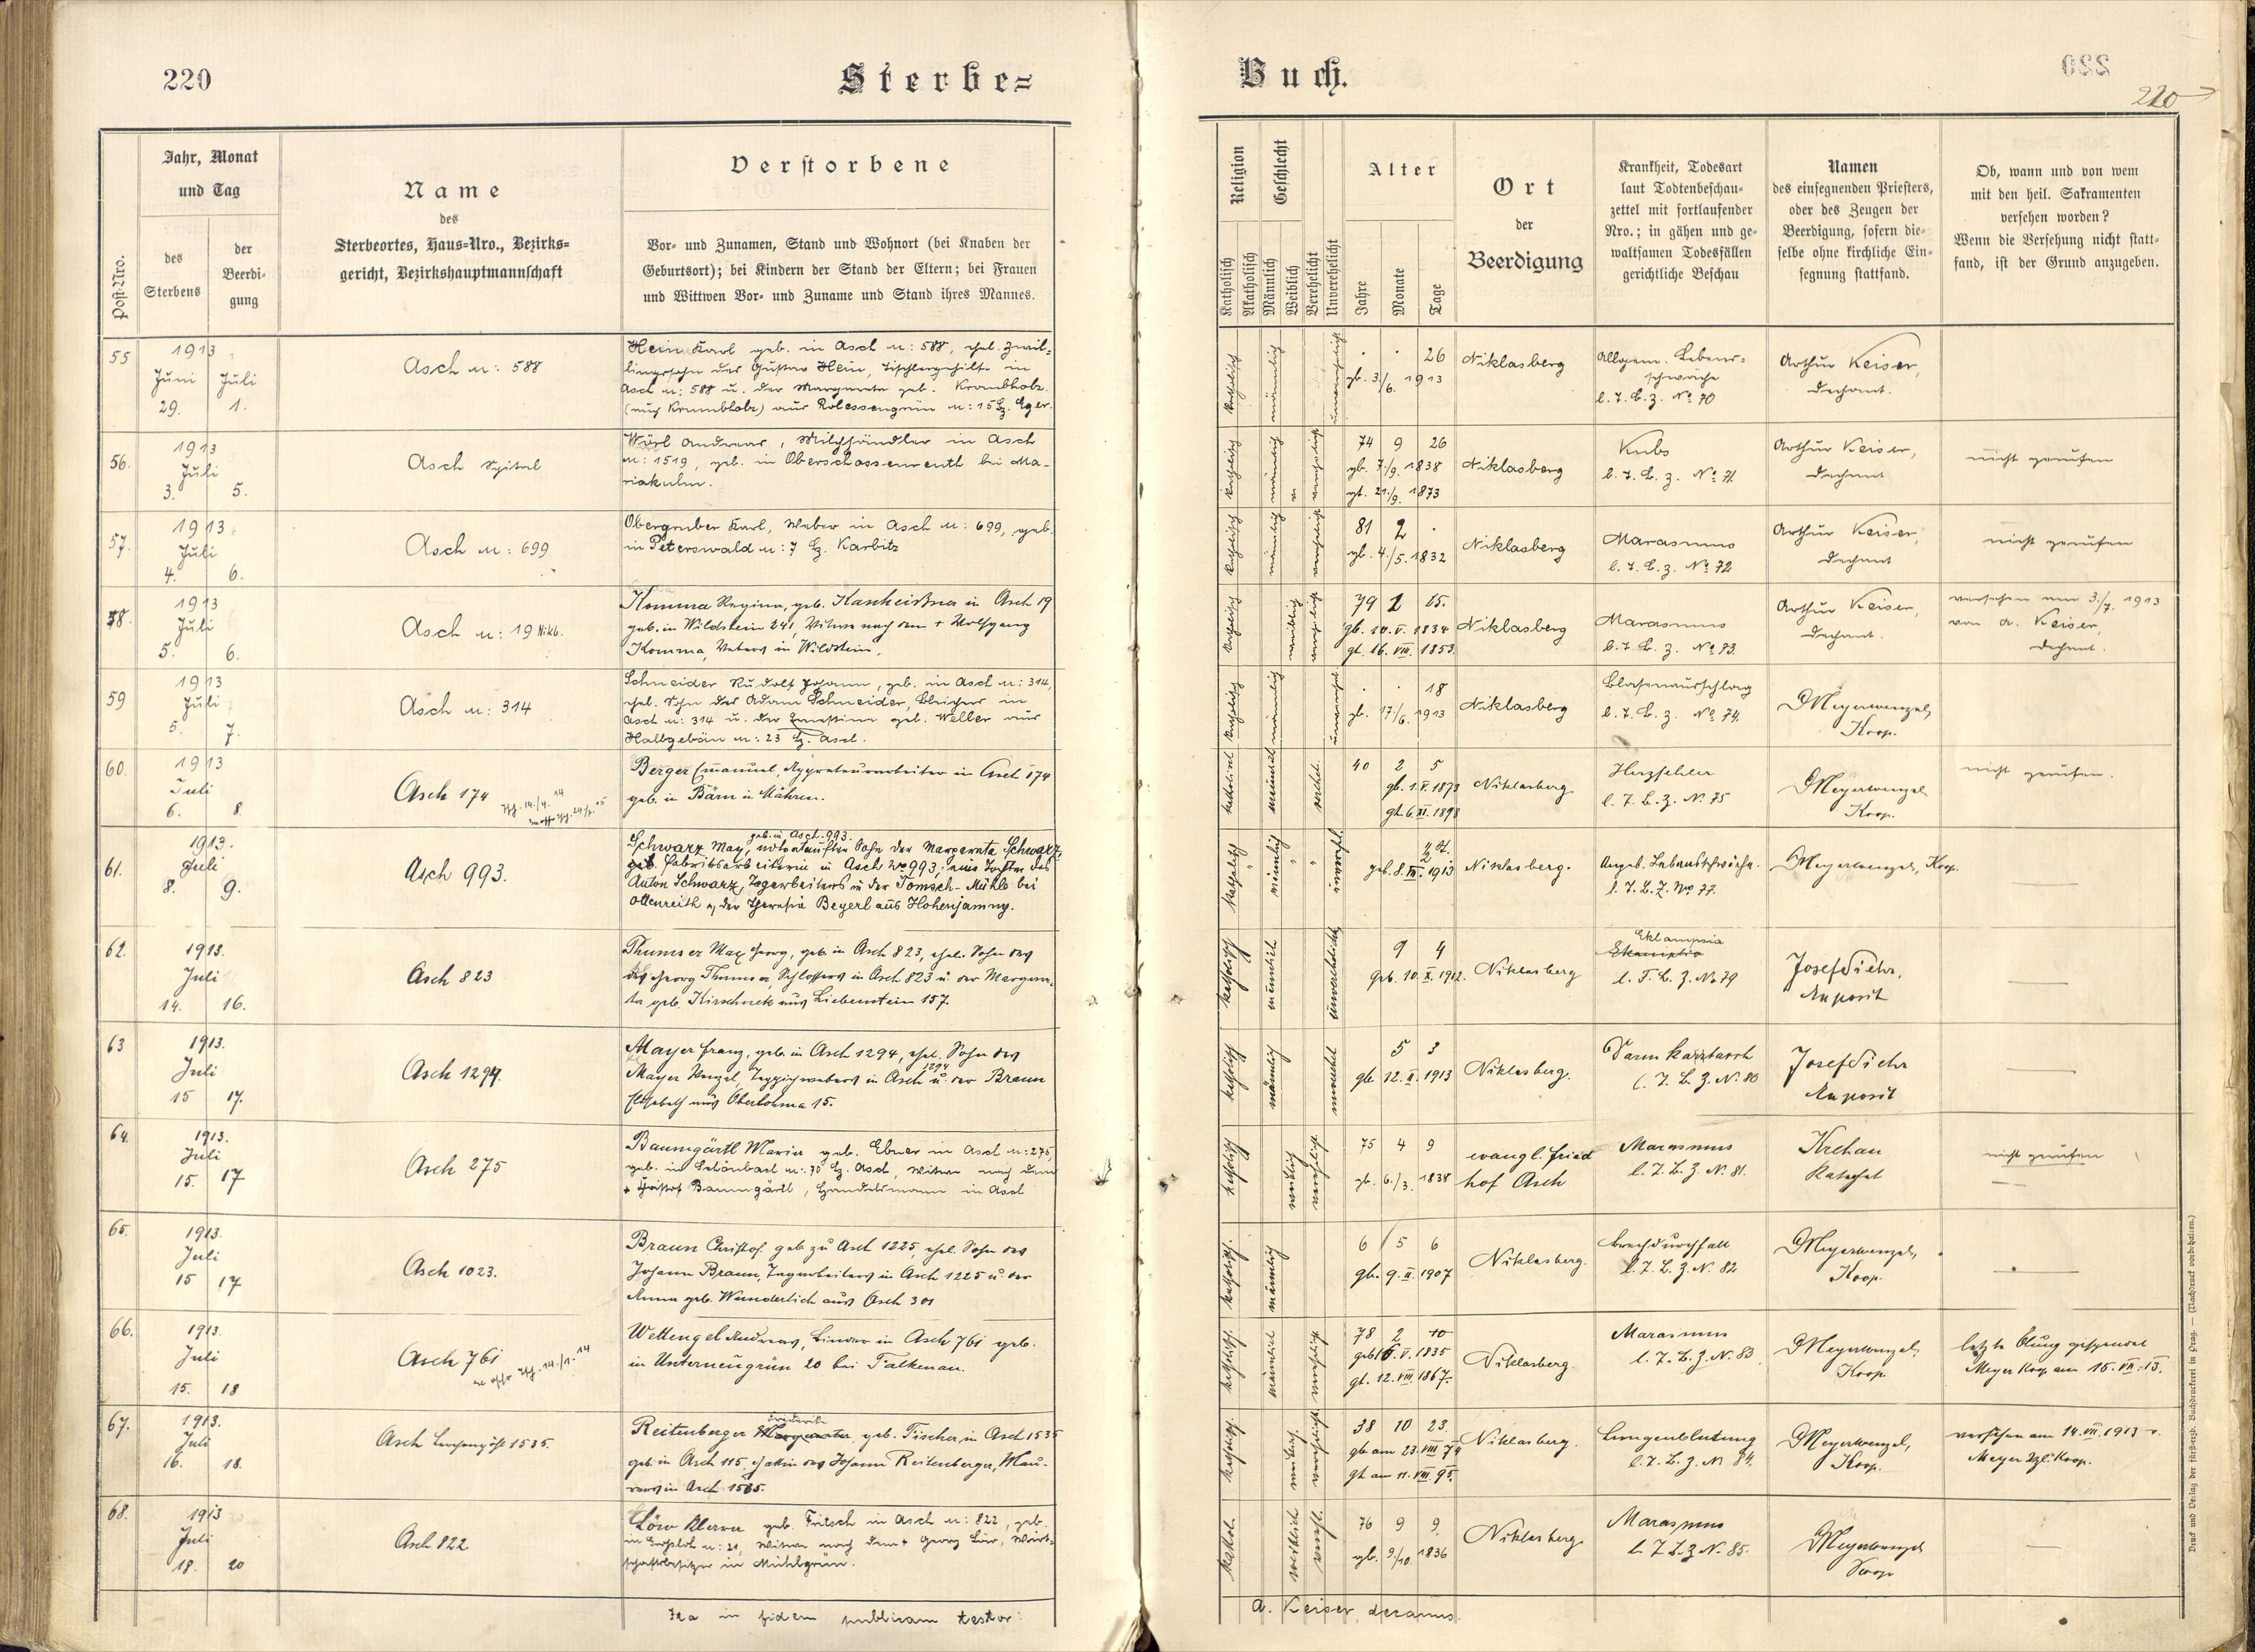 220
Sterbe=
Buch.
220
Post-Nro.
Jahr, Monat
und Tag
des
Sterbens
der
Beerdi-
gung
Name
des
Sterbeortes, Haus-Nro., Bezirks=
gericht, Bezirkshauptmannschaft
Verstorbene
Vor- und Zunamen, Stand und Wohnort (bei Knaben der
Geburtsort); bei Kindern der Stand der Eltern; bei Frauen
und Wittwen Vor- und Zuname und Stand ihres Mannes.
Religion
Katholisch
Akatholisch
Geschlecht
Männlich
Weiblich
Verehelicht
Unverehelicht
Alter
Jahre
Monate
Tage
Ort
der
Beerdigung
Krankheit, Todesart
laut Todtenbeschau-
zettel mit fortlaufender
Nro.; in gähen und ge-
waltsamen Todesfällen
gerichtliche Beschau
Namen
des einsegnenden Priesters,
oder des Zeugen der
Beerdigung, sofern die-
selbe ohne kirchliche Ein-
segnung stattfand.
Ob, wann und von wem
mit den heil. Sakramenten
versehen worden?
Wenn die Versehung nicht statt-
fand, ist der Grund anzugeben.
55
1913
Juni Juli
29. 1.
Asch n: 588
Hein Karl geb. in Asch n: 588, ehel. Zwil-
lingssohn des Gustav Hein, Tischlergehilfe in
Asch n: 588 u. der Margareta geb. Krambholz
(aus Rolessengrün n: 15 Bz. Eger.
katholisch
männlich
. . 26
gb. 3./6. 1913
Niklasberg
Allgem. Lebens=
schwäche
l. T. B. z. No 70
Arthur Keiser,
Dechant.
56.
1913
Juli
3. 5.
Asch Spital
Würl Andreas, Milchhändler in Asch
n: 1519, geb. in Oberschossenreuth bei Ma-
riakulm.
katholisch
männlich
verehelicht
74 9 26
gb. 7./9. 1838
gt. 21./9. 1873
Niklasberg
l. T. B. z. No 71.
Arthur Keiser,
Dechant
nicht gerufen
57.
1913
Juli
4. 6.
Asch n: 699
Obergruber Karl, Weber in Asch n: 699, geb.
in Peterswald n: 7 Bz. Karbitz
katholisch
männlich
verehelicht
81 2 .
gb. 4./5. 1832
Niklasberg
Marasmus
l. T. B. z. No 72
Arthur Keiser,
Dechant
nicht gerufen
58.
1913
Juli
5. 6.
Asch n: 19 Nikb.
Komma Regina, geb. in Asch 19
geb. in Wildstein 241, Witwe nach dem + Wolfgang
Komma, Webers in Wildstein.
katholisch
weiblich
79 1 25.
gb. 10. V. 1834
gt. 16. VIII. 1853
Niklasberg
Marasmus
l. T. B. z. No 73.
Arthur Keiser,
Dechant.
versehen am 3./7. 1913
von A. Keiser,
Dechant.
59
1913
Juli
5. 7.
Asch n: 314
Schneider Rudolf Johann, geb. in Asch n: 314,
ehel. Sohn des Adam Schneider, Bleicher in
Asch n: 314 u. der Ernestine geb. Weller aus
Hallgebäu n: 23 Bz. Asch.
katholisch
männlich
. . 18
gb. 17./6. 1913
Niklasberg
Blasenausschlag
l. T. B. z. No 74.
Meyerwenzel,
Koop.
60.
1913
Juli
6. 8.
Asch 174
Berger Emanuel, Appreteurarbeiter in Asch 174
geb. in Bärn in Mähren.
männlich
verehel.
40 2 5
gb. 1. V. 1873
gt. 6. XI. 1898
Niklasberg
Herzfehler
l. T. B. z. No 75
Meyerwenzel
Koop.
nicht gerufen.
61.
1913.
Juli
8. 9.
Asch 993.
geb. in Asch. 993.
Schwarz Max, notgetaufter Sohn der Margareta Schwarz,
Fabriksarbeiterin in Asch No 993, eine Tochter des
Anton Schwarz, Tagarbeiters in der Tomsch-Mühle bei
Ottenreith u. der Theresia Beyerl aus Hohenjamny.
Katholisch
männlich
geb. 8. VII. 1913
Niklasberg.
Angeb. Lebensschwäche.
l. T. B. Z. No 77.
Meyerwenzel, Koop.
62.
1913.
Juli
14. 16.
Asch 823
Thumser Max Georg, geb. in Asch 823, ehel. Sohn des
des Georg Thumser, Schlossers in Asch 823 u. der Margare-
ta geb. Kirschneck aus Liebenstein 157.
katholisch
männlich
unverehelicht
9 4
geb. 10. X. 1912.
Niklasberg
Eklampsia
l. T. B. Z. No 79
Josef Dichr,
Exposit
63
1913.
Juli
15 17.
Asch 1294.
Mayer Franz, geb. in Asch 1294, ehel. Sohn des
Mayer Wenzel, Teppichwebers in Asch 1294 u. der Braun
Elisabeth aus Oberlohma 15.
katholisch
männlich
5 3
gb. 12. II. 1913
Niklasberg.
Darmkatarrh
l. T. B. z. No 80
Josef Dichr
Exposit
64.
1913.
Juli
15. 17
Asch 275
Baumgärtl Maria geb. Ebner in Asch n: 275,
geb. in Schönbach n: 70 Bz. Asch, Witwe nach dem
+ Christof Baumgärtl, Handelsmann in Asch
katholisch
weiblich
75 4 9
gb. 6./3. 1838
evangl. Fried
hof Asch
Marasmus
l. T. B. Z No 81.
Krehan
Katechet
nicht gerufen
65.
1913.
Juli
15 17
Asch 1023.
Braun Christof geb. zu Asch 1225, ehel. Sohn des
Johann Braun, Tagarbeiters in Asch 1225 u. der
Anna geb. Wunderlich aus Asch 301
katholisch.
männlich
6 5 6
gb. 9. II. 1907
Niklasberg.
Brechdurchfall
l. T. B. Z. No 82
Meyerwenzel,
Koop.
66.
1913.
Juli
15. 18
Asch 761
Wettengel Andreas, Binder in Asch 761 geb.
in Unterneugrün 20 bei Falkenau.
katholisch.
männlich
verehelicht
78 2 10
geb. 6. V. 1835
gt. 12. VIII. 1867.
Niklasberg.
Marasmus
l. T. B. Z. No 83.
Meyerwenzel,
Koop
letzte Ölung gespendet
Meyer Koop am 15. VII. 13.
67.
1913.
Juli
16. 18.
Asch 1535.
Friederike
Reitenberger Margareta, geb. Fischer, in Asch 1535
geb. in Asch 115, Gattin des Johann Reitenberger, Mau-
rers in Asch 1535.
katholisch.
verehelicht
38 10 23.
gb am 23. VIII. 74
gt am 11. VIII. 95.
Niklasberg.
Lungenblutung
l. T. B. z. No 84.
Meyerwenzel,
Koop.
versehen am 14. VII. 1913 v.
Meyer Koop.
68.
1913
Juli
18. 20
Asch 822
Löw geb. Fritsch in Asch n: 822, geb.
in n: 21, Witwe nach dem + Georg Löw, Wirt-
schaftsbesitzer in Mühlgrün.
Kathol.
weiblich
76 9 9
gb. 9./10. 1836
Niklasberg
Marasmus
l. T. B. z No 85.
Meyerwenzel
Koop
Ita in fidem publicam testor:
A. Keiser, decanus.
Druck und Verlag der fürsterzb. Buchdruckerei in Prag. — (Nachdruck vorbehalten.)